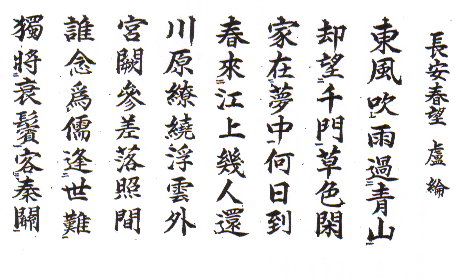 長安春望 盧綸
東風吹雨過青山
却望千門草色閑
家在夢中何日到
春來江上幾人還
川原繚繞浮雲外
宮闕參差落照間
誰念爲儒逢世難
獨將衰鬢客秦關